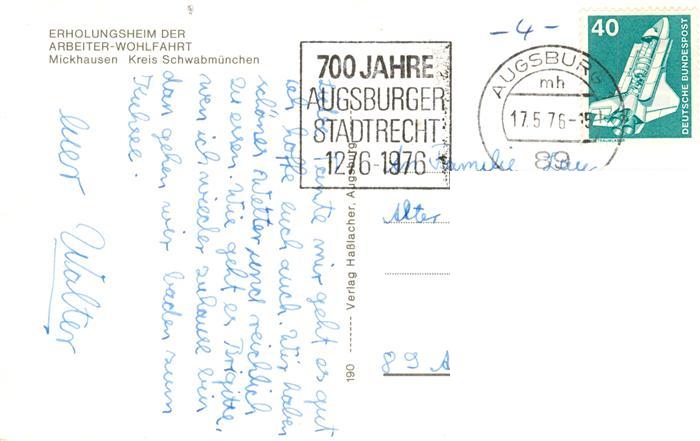 ERHOLUNGSHEIM DER
ARBEITER-WOHLFAHRT
Mickhausen Kreis Schwabmünchen
- 4 -
700 JAHRE
AUGSBURGER
STADTRECHT
1276-1976
AUGSBURG
mh
17.5.76-15
89
40
DEUTSCHE BUNDESPOST
Tante mir geht es gut
ich hoffe euch auch. Wir haben
schönes Wetter und reichlich
zu essen. Wie geht es Brigitte.
wen ich wieder zuhause bin
dan gehen wir baden zum
euer Walter
190 Verlag Haßlacher, Augsburg
An Familie
Alter
89 A